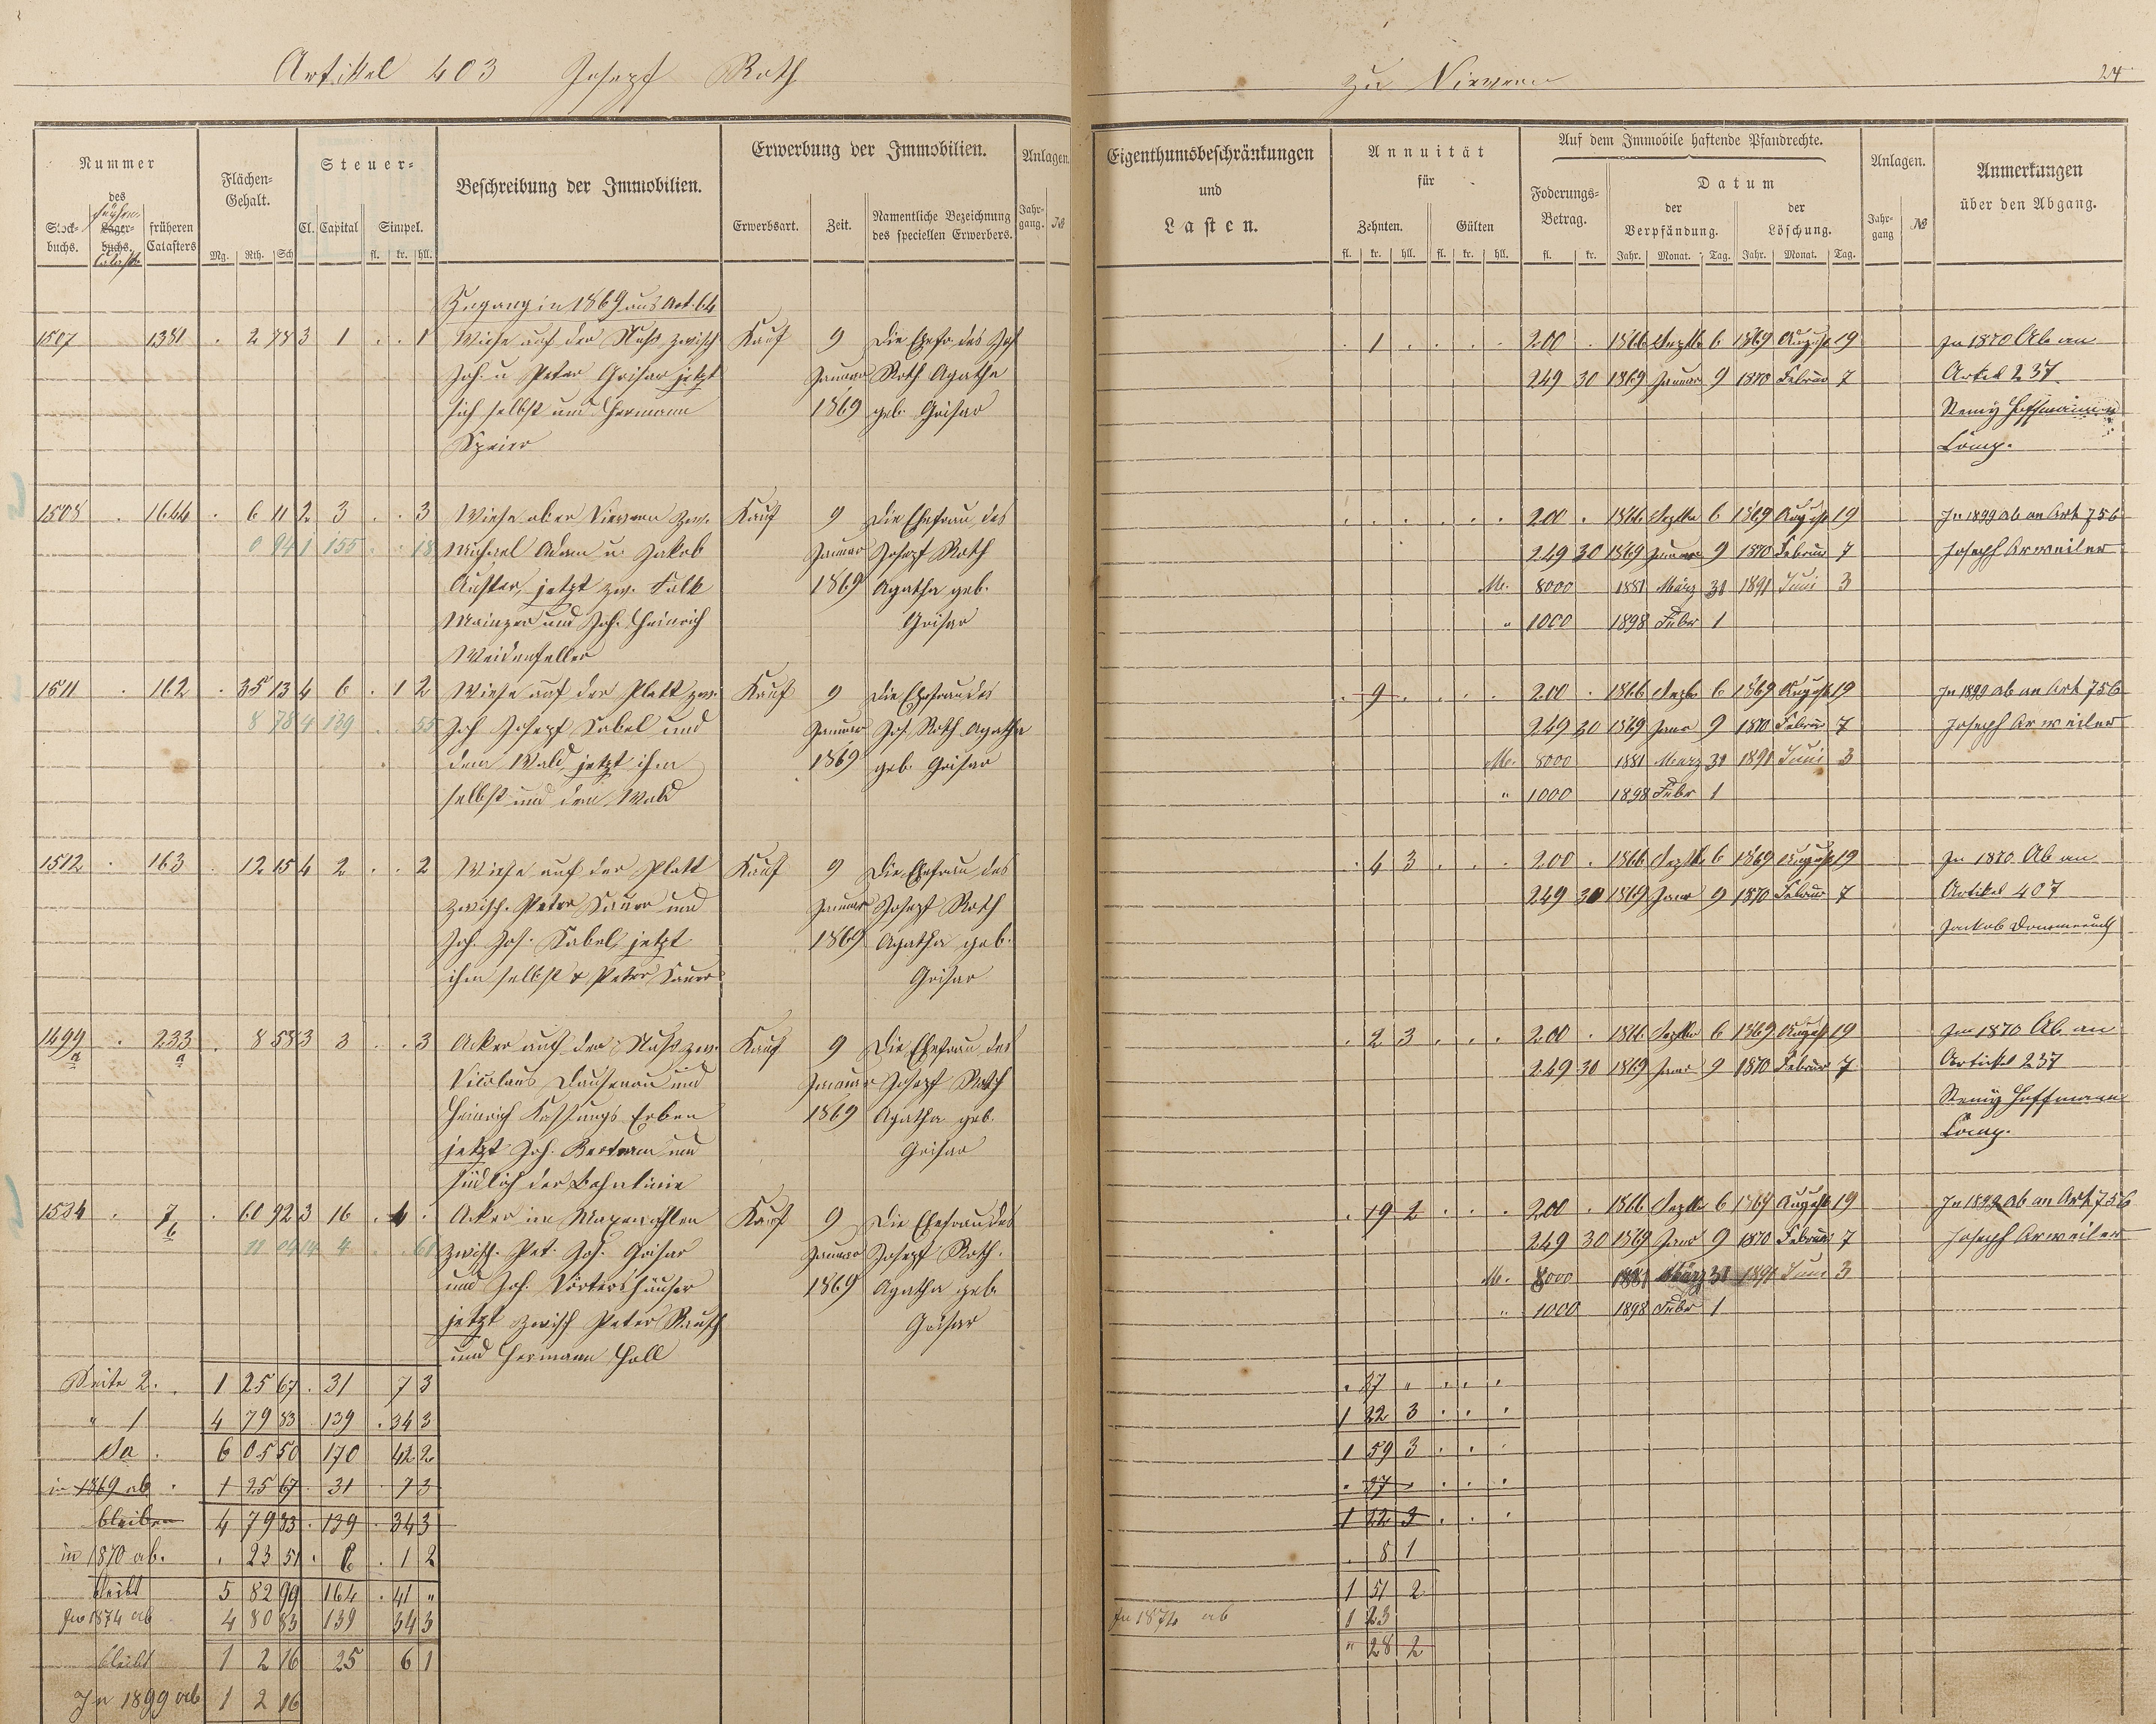 Artikel 403 Joseph Roth
zu Nievern
24
Nummer
des
Stock-
buchs.
Lager-
buchs.
früheren
Catasters
Flächen-
Gehalt.
Mg. Rth. Sch
Steuer-
Cl. Capital Simpel.
fl. kr. hll.
Beschreibung der Immobilien.
Erwerbung der Immobilien.
Erwerbsart. Zeit. Namentliche Bezeichnung
des speciellen Erwerbers.
Anlagen.
Jahr-
gang. №
Eigenthumsbeschränkungen
und
Lasten.
Annuität
für
Zehnten. Gülten
fl. kr. hll. fl. kr. hll.
Auf dem Immobile haftende Pfandrechte.
Foderungs-
Betrag.
fl. kr.
Datum
der
Verpfändung.
der
Löschung.
Jahr. Monat. Tag. Jahr. Monat. Tag.
Anlagen.
Jahr-
gang №
Anmerkungen
über den Abgang.
Zugang in 1869 aus Art. 64
1507 1381 . 2 78 3 1 . . 1 Wiese auf der zwisch Kauf 9 Die Ehefr. des Jos . 1 . . . . 200 . 1866 Septbr 6 1869 August 19 In 1870 Ab an
Joh. u Peter Grisar jetzt Januar Roth Agatha 249 30 1869 Januar 9 1870 Februar 7 Artikel 237
sich selbst und Hermann 1869 geb. Grisar Remy Hoffmann
Speier Comp.
1508 . 1644 . 6 11 2 3 . . 3 Wiese ober Nievern zw. Kauf 9 Die Ehefrau des . . . . . . 200 . 1866 Septbr 6 1869 August 19 In 1899 ab an Art 756
0 94 1 155 . . 18 Michael Adam u. Jakob Januar Joseph Roth 249 30 1869 Januar 9 1870 Februar 7 Joseph Arweiler
jetzt zw. Falk 1869 Agatha geb. M. 8000 1881 März 31 1891 Juni 3
Mainzer und Joh. Heinrich Grisar " 1000 1898 Febr 1
Weidenfeller
1511 . 162 . 35 13 4 6 . 1 2 Wiese auf der Platt zw. Kauf 9 Die Ehefrau des . 9 . . . . 200 . 1866 Septbr 6 1869 August 19 In 1899 ab an Art 756
8 78 4 139 . 55 Joh Joseph Sabel und Januar Jos. Roth Agatha 249 30 1869 Janr 9 1870 Februr 7 Joseph Arweiler
dem Wald, jetzt ihm 1869 geb. Grisar M. 8000 1881 März 31 1891 Juni 3
selbst und dem Wald " 1000 1898 Febr 1
1512 . 163 . 12 15 4 2 . . 2 Wiese auf der Platt Kauf 9 Die Ehefrau des . 4 3 . . . 200 . 1866 Septbr 6 1869 August 19 In 1870 Ab an
zwisch. Peter Sauer und Januar Joseph Roth 249 30 1869 Janr 9 1870 Februar 7 Artikel 407
Joh. Jos. Sabel, jetzt 1869 Agatha geb. Jackob
ihm selbst & Peter Sauer Grisar
1499 a . 233 a . 8 58 3 3 . . 3 Acker auf der zw. Kauf 9 Die Ehefrau des . 2 3 . . . 200 . 1866 Septbr 6 1869 August 19 In 1870 Ab an
Nicolaus Dausenau und Januar Joseph Roth 249 30 1869 Janr 9 1870 Februar 7 Artickel 237
Heinrich Erben 1869 Agatha geb. Remy Hoffmann
jetzt Joh. Bertram und Grisar Comp.
südlich der Bahnlinie
1524 . 7 b . 60 92 3 16 . 4 . Acker im Kauf 9 Die Ehefrau des . 19 2 . . . 200 . 1866 Septbr 6 1869 August 19 In 1899 ab an Art 756
zwisch. Pet. Jos. Grisar Januar Joseph Roth. 249 30 1869 Janr 9 1870 Februar 7 Joseph Arweiler
und Joh. Dörtershäuser 1869 Agatha geb. M. 8000 1881 März 31 1891 Juni 3
jetzt zwisch Peter Rauch Grisar " 1000 1898 Febr 1
und Hermann Holl
Seite 2. . 1 25 67 . 31 7 3 . 37 " . . .
" 1 4 79 83 . 139 . 34 3 1 22 3 . . .
Sa . 6 05 50 170 42 2 1 59 3 . . .
in 1869 ab . 1 25 67 . 31 . 7 3 . 37 " . . .
bleiben 4 79 83 . 139 . 34 3 1 22 3 . . .
in 1870 ab. . 23 51 . 6 . 1 2 . 8 1
bleibt 5 82 99 164 . 41 " 1 51 2
In 1874 ab 4 80 83 139 34 3 In 1874 ab 1 23
bleibt 1 2 16 25 6 1 " 28 2
In 1899 ab 1 2 16